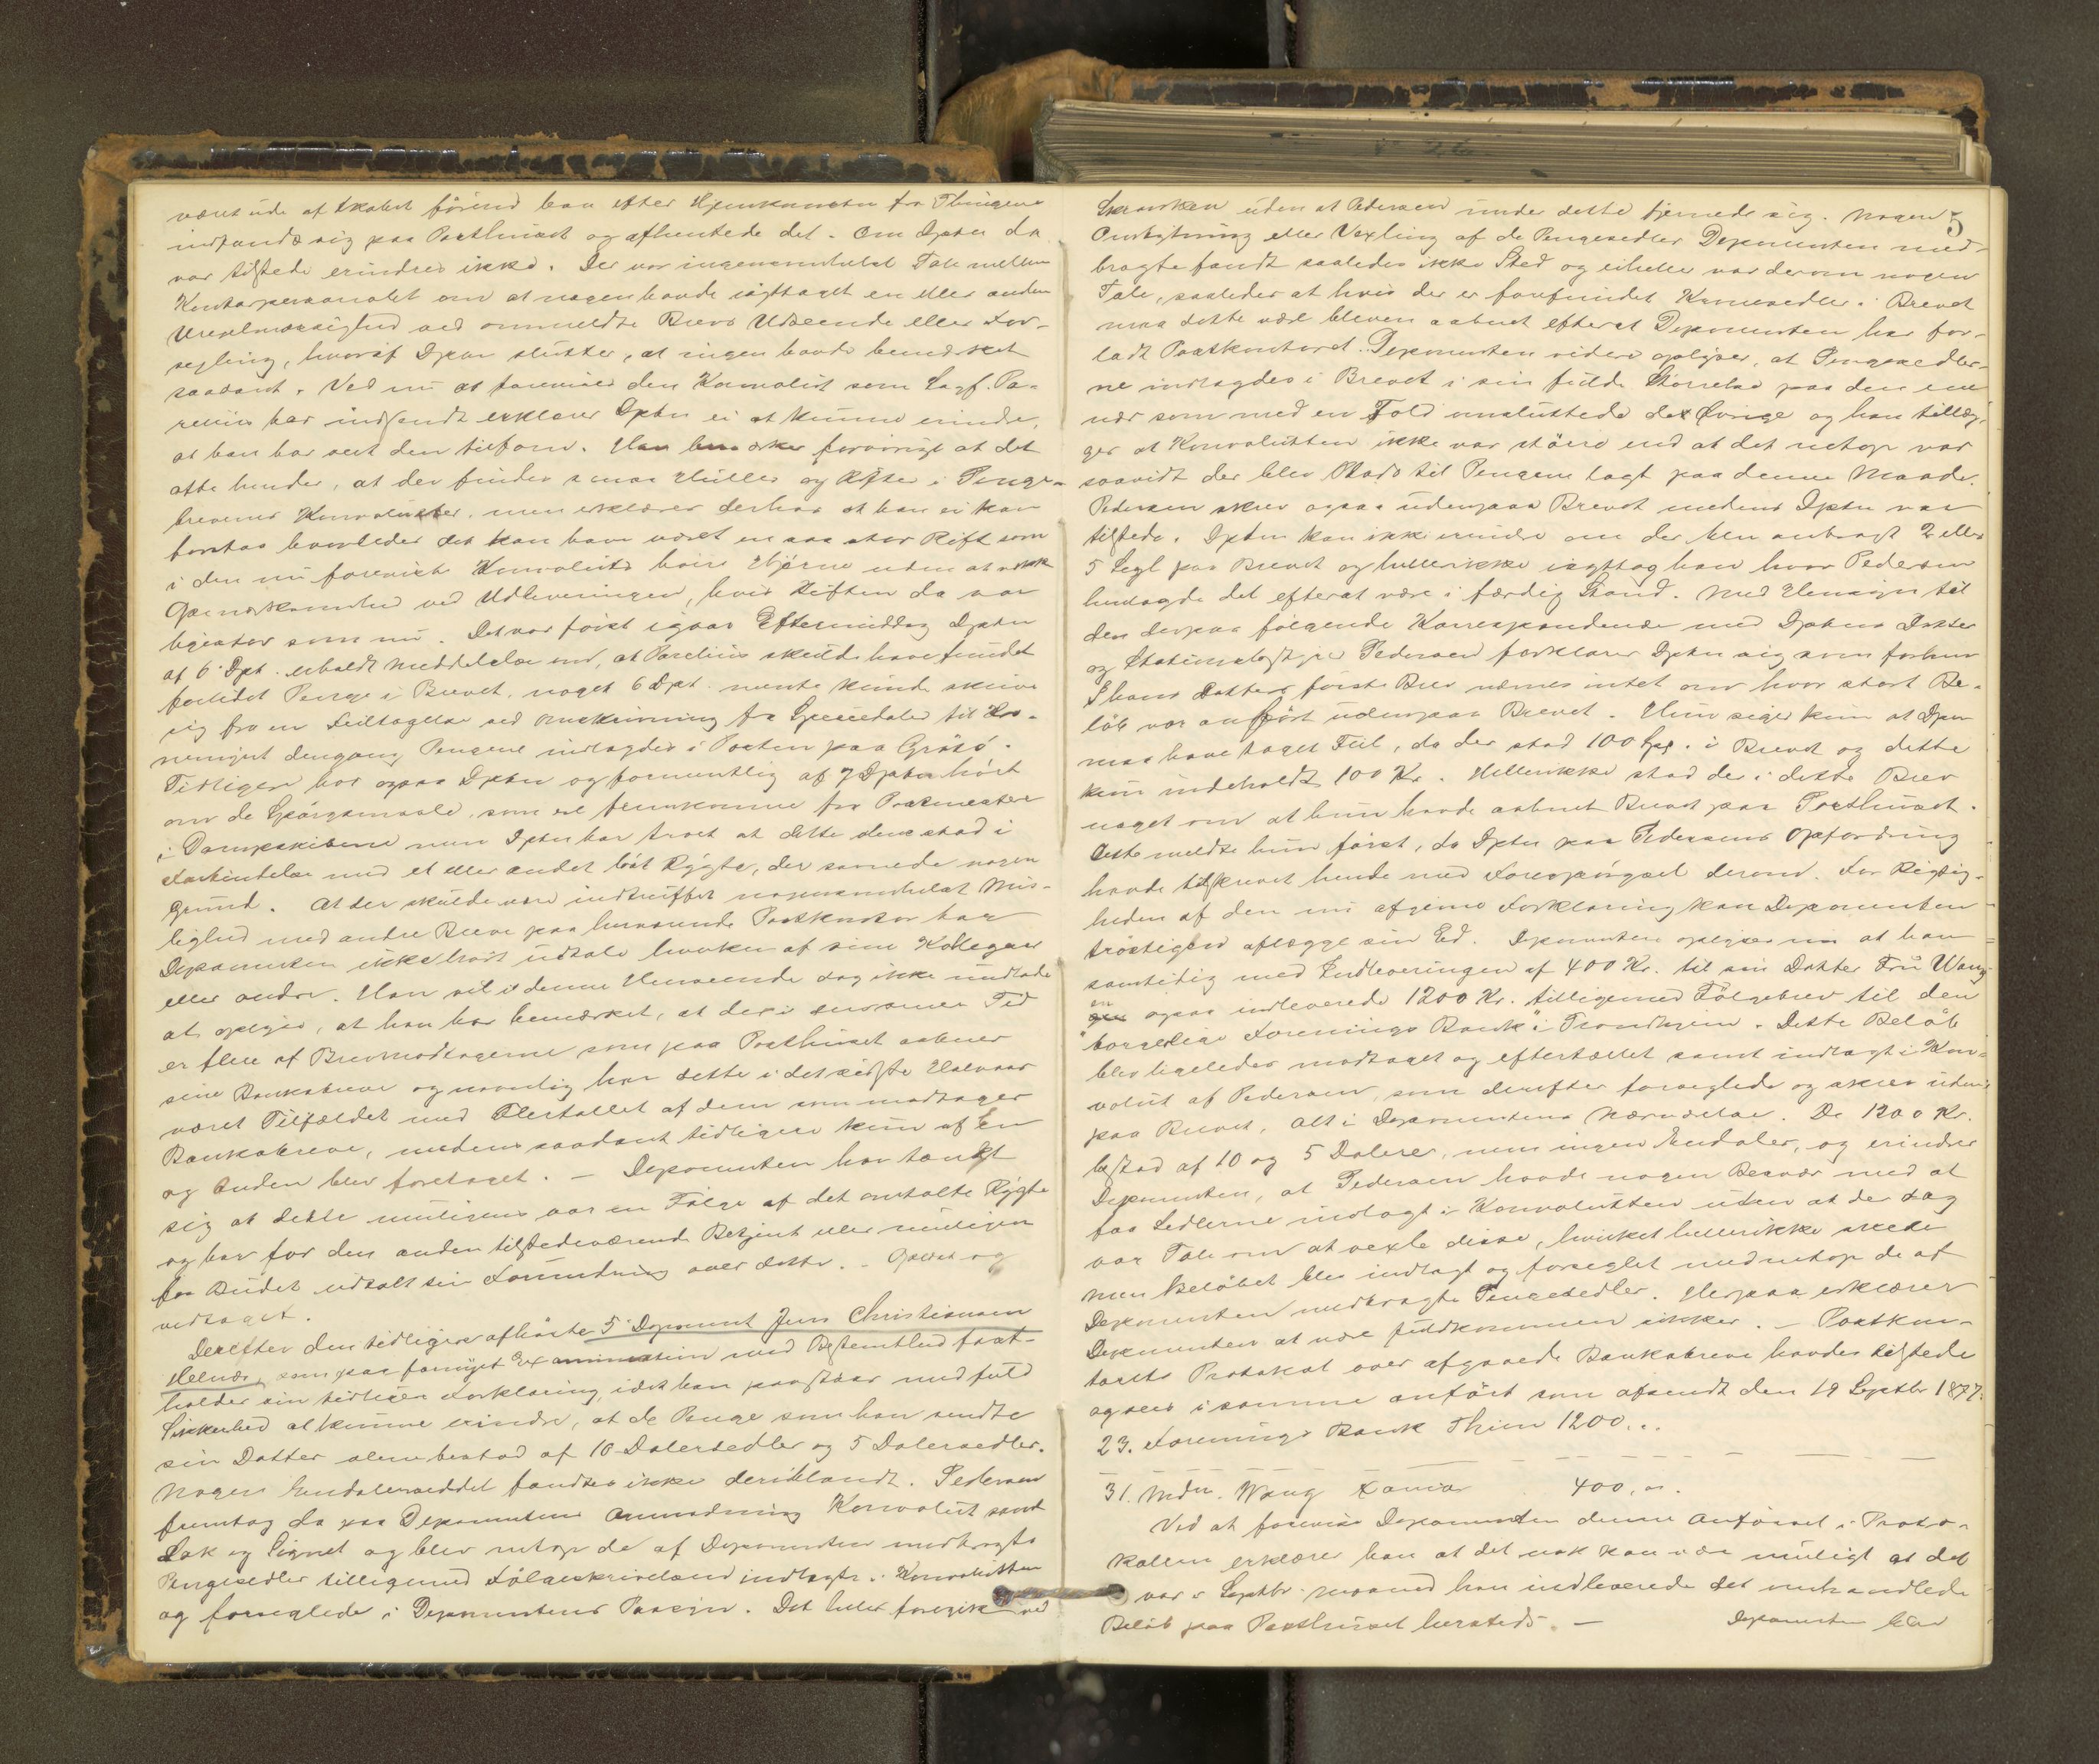 været ude af Skabet förend han efter Hjemkomsten fra Thingene
indfandt sig paa Posthuset og afhentede det. Om Dptn da
var tilstede erindres ikke. Der var ingensomhelst Tale mellem
Kontorpersonalet om at nogen havde iagttaget en eller anden
Uregelmæssighed ved ommeldte Brevs Udseende eller For-
segling, hvoraf Dptn slutter, at ingen havde bemærket
saadant. Ved nu at forevises den Konvolut som Sagf. Pa-
relius har indsendt erklærer Dptn ei at kunne erindre,
at han har seet den tilforn. Han bemærker forövrigt at det
ofte hender, at der findes smaa Huller og Rifter i Penge-
brevenes Konvolutter, men erklærer derhos at han ei kan
forstaa hvorledes det kan have været en saa stor Rift som
i den nu foreviste Konvoluts höire Hjörne uden at vække
Opmærksomhed ved Udleveringen, hvis Riften da var
ligesaa stor som nu. Det var först igaar Eftermiddag Dptn
af 6 Dpt. erholdt Meddelelse om, at Parelius skulde have fundet
forlidet Penge i Brevet, noget 6 Dpt. mente kunde skrive
sig fra en Feiltagelse ved Omskrivning fra Speciedaler til Kro-
nemynt dengang Pengene indlagdes i Posten paa Grötö.
Tidligere har ogsaa Dptn og formentlig af 7 Dptn hört
om de Spörgsmaale, som ere fremkomne fra Postmestere
i Dampskibene men Dptn har troet at dette dens stod i
Forbindelse med et eller andet löst Rygte, der savnede nogen
Grund. At der skulde være indtruffet nogensomhelst Mis-
lighed med andre Breve paa herværende Postkontor har
Deponenten ikke hört udtale hverken af sine Kolleger
eller andre. Han vil i denne Henseende dog ikke undlade
at oplyse, at han har bemærket, at der i den senere Tid
er flere af Brevmodtagerne som paa Posthuset aabner
sine Bankobreve og navnlig har dette i det sidste Halvaar
været Tilfældet med Flertallet af dem som modtager
Bankobreve, medens saadant tidligere kun af En
og Anden blev foretaget. — Deponenten har tænkt
sig at dette muligens var en Fölge af det omtalte Rygte
og har for den anden tilstedeværende Betjent eller muligen
for Budet udtalt sin Forundring over dette. - Oplæst og
vedtaget.
Derefter den tidligere afhörte 5 Deponent Jens Christiansen
Helnæs, som paa fornyet Examination med Bestemthed fast-
holder sin tidligere Forklaring, idet han paastaar med fuld
Sikkerhed at kunne erindre, at de Penge som han sendte
sin Datter alene bestod af 10 Dalersedler og 5 Dalersedler.
Nogen Endalerseddel fandtes ikke deriblandt. Pedersen
fremtog da paa Deponentens Anmodning Konvolut samt
Lak og Signet og blev netop de af Deponenten medbragte
Pengesedler tilligemed Fölgeskrivelsen indlagte i Konvolutten
og forseglede i Deponentens Paasyn. Det hele foregik ved
5
Skranken uden at Pedersen under dette fjernede sig. Nogen
Ombytning eller Vexling af de Pengesedler Deponenten med-
bragte fandt saaledes ikke Sted og eiheller var derom nogen
Tale, saaledes at hvis der er forefundet Kronesedler i Brevet
maa dette være bleven aabnet efterat Deponenten har for-
ladt Postkontoret. Deponenten videre oplyser, at Pengesedler-
ne indlagdes i Brevet i sin fulde Störrelse paa den ene
nær som med en Fold omsluttede det Övrige og han tillæg-
ger at Konvolutten ikke var större end at det netop var
saavidt der blev Plads til Pengene lagt paa denne Maade.
Pedersen skrev ogsaa udenpaa Brevet medens Dptn var
tilstede. Dptn kan ikke erindre om der blev anbragt 2 eller
5 Segl paa Brevet og hellerikke iagttog han hvor Pedersen
henlagde det efterat være i færdig Stand. Med Hensyn til
den derpaa fölgende Korrespondence med Dptns Datter
og Pedersen forklarer Dptn sig som forhen
I hans Datters förste Brev nævnes intet om hvor stort Be-
löb var anfört udenpaa Brevet. Hun siger kun at Dptn
maa have taget Feil, da der stod 100 Spd. i Brevet og dette
kun indeholdt 100 Kr. Hellerikke stod der i dette Brev
noget om at hun havde aabnet Brevet paa Posthuset.
Dette meldte hun först, da Dptn paa Pedersens Opfordring
havde tilskrevet hende med Forespörgsel derom. For Rigtig-
heden af den nu afgivne Forklaring kan Deponenten
tröstigen aflægge sin Ed. Deponenten oplyser nu at han
samtidig med Indleveringen af 400 Kr. til sin Datter Fru Wang
en ogsaa indleverede 1200 Kr. tilligemed Fölgebrev til den
"borgerlige Forenings Bank" i Trondhjem. Dette Belöb
blev ligeledes modtaget og eftertællet samt indlagt i Kon-
volut af Pedersen, som derefter forseglede og skrev uden-
paa Brevet, alt i Deponentens Nærværelse. De 1200 Kr.
bestod af 10 og 5 Dalere, men ingen Endaler, og erindrer
Deponenten, at Pedersen havde nogen Besvær med at
faa Sedlerne indlagt i Konvolutten uden at der dog
var Tale om at vexle disse, hvilket hellerikke skede
men Belöbet blev indlagt og forseglet med netop de af
Deponenten medbragte Pengesedler. Herpaa erklærer
Deponenten at være fuldkommen sikker. — Postkon-
torets Protokol over afgaaede Bankobreve havdes tilstede
og sees i samme anfört som afsendt den 19 Septbr 1877:
23. Forenings Bank Thjem 1200 . .
31. Mdm. Wang 400 . .
Ved at forevise Deponenten denne Anförsel i Proto-
kollen erklærer han at det nok kan være muligt at det
var i Septbr. Maaned han indleverede det omhandlede
Belöb paa Posthuset hersteds. — Deponenten blev